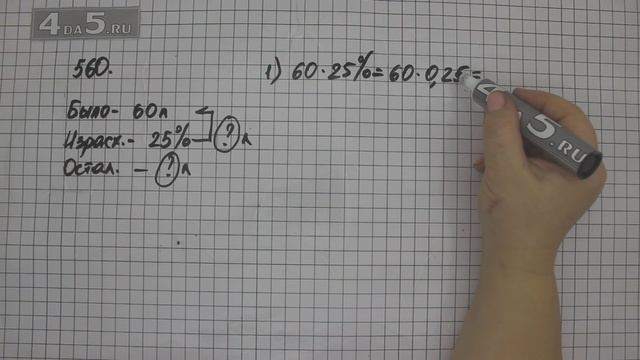 4DA5.RU
560.
Было - 60 л
Израсх. - 25% ? л
Остал. - ? л
1) 60 · 25% = 60 · 0,25 =
4DA5.RU